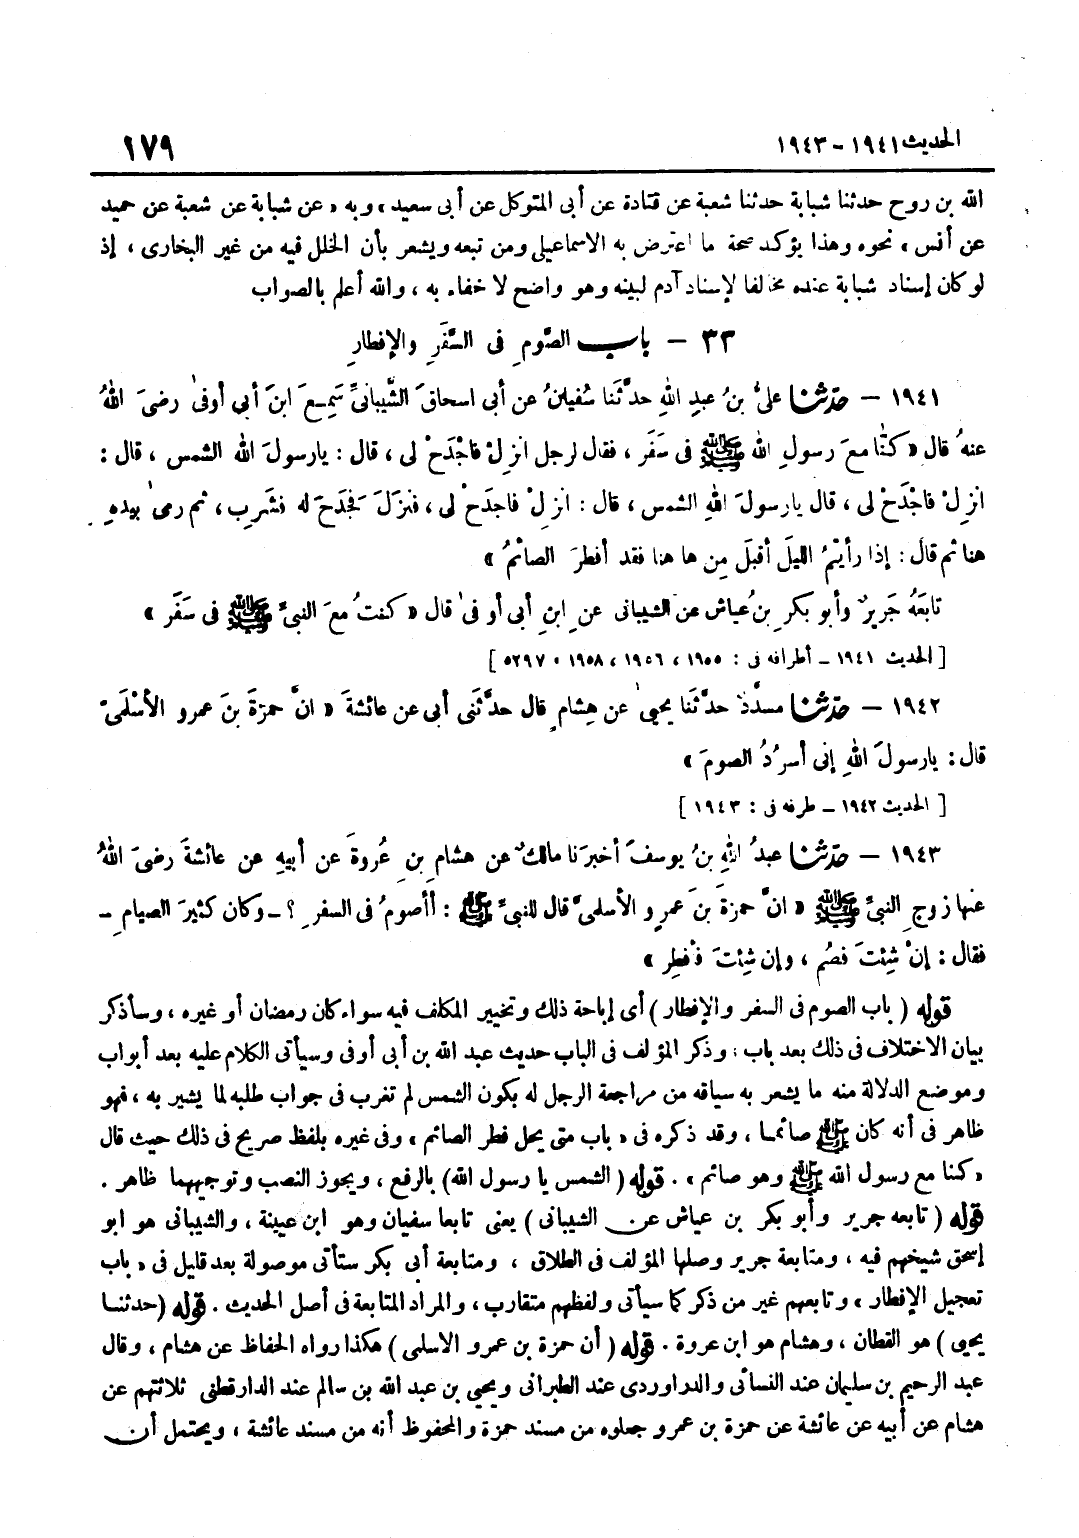 الحديث ١٩٤١ - ١٩٤٣ ١٧٩
الله بن روح حدثنا شبابة حدثنا شعبة عن قتادة عن أبى المتوكل عن أبى سعيد» وبه « عن شبابة عن شعبة عن حميد
عن أنس » نحوه وهذا يؤكد صحة ما اعترض به الاسماعيلى ومن تبعه ويشعر بأن الخلل فيه من غير البخارى ، إذ
لو كان إسناد شبابة عنده مخالفا لإسناد آدم لبينه وهو واضح لا خفاء به ، والله أعلم بالصواب
٣٣ - باب الصَّومِ فى السَّفَرِ والإفطارِ
١٩٤١ - حدّثنا علىُّ بنُ عبدِ اللهِ حدَّثَنا سُفيانُ عن أبى اسحاقَ الشَّيبانىِّ سَمِعَ ابنَ أبي أوفىٰ رضىَ اللهُ
عنهُ قال « كنّا معَ رسولِ الله ﷺ فى سَفَر ، فقال لرجل انزِلْ فاجْدَحْ لى ، قال : يارسولَ الله الشمس ، قال :
انزِلْ فاجْدَحْ لى ، قال يارسولَ اللهِ الشمس ، قال : انزِلْ فاجدَحْ لى ، فنزَلَ فجَدَحَ له فشَرِب ، ثم رمىٰ بيدهِ
هنا ثم قال : إذا رأيتمُ الليلَ أقبلَ مِن ها هنا فقد أفطرَ الصائمُ »
تابَعَهُ جَريرٌ وأبو بكرِ بنُ عياش عن الشيبانى عنِ ابنِ أبى أوفىٰ قال « كنتُ معَ النبىِّ ﷺ فى سَفَر »
[ الحديث ١٩٤١ - أطرافه فى : ١٩٥٥ ، ١٩٥٦ ، ١٩٥٨ ، ٥٢٩٧ ]
١٩٤٢ - حدّثنا مسدَّدٌ حدَّثَنا يحيىٰ عن هِشامٍ قال حدَّثَنى أبى عن عائشةَ « انَّ حمزةَ بنَ عمرو الأسْلَمىَّ
قال : يارسولَ اللهِ إنى أسرُدُ الصومَ »
[ الحديث ١٩٤٢ - طرفه فى : ١٩٤٣ ]
١٩٤٣ - حدّثنا عبدُ اللهِ بنُ يوسفَ أخبرَنا مالكٌ عن هشامِ بنِ عُروةَ عن أبيهِ عن عائشةَ رضىَ اللهُ
عنها زوجِ النبىِّ ﷺ « انَّ حمزةَ بنَ عمرٍو الأسلمىَّ قال للنبىِّ ﷺ : أأصومُ فى السفرِ ؟ - وكان كثيرَ الصيامِ -
فقال : إنْ شِئتَ فصُم ، وإن شِئتَ فأفطِر »
قوله ( باب الصوم فى السفر والإفطار ) أى إباحة ذلك وتخيير المكلف فيه سواء كان رمضان أو غيره ، وسأذكر
بيان الاختلاف فى ذلك بعد باب ، وذكر المؤلف فى الباب حديث عبد الله بن أبى أوفى وسيأتى الكلام عليه بعد أبواب
وموضع الدلالة منه ما يشعر به سياقه من مراجعة الرجل له بكون الشمس لم تغرب فى جواب طلبه لما يشير به ، فهو
ظاهر فى أنه كان ﷺ صائما ، وقد ذكره فى « باب متى يحل فطر الصائم » وفى غيره بلفظ صريح فى ذلك حيث قال
« كنا مع رسول الله ﷺ وهو صائم » . قوله ( الشمس يا رسول الله) بالرفع ، ويجوز النصب وتوجيههما ظاهر .
قوله ( تابعه جرير وأبو بكر بن عياش عن الشيبانى ) يعنى تابعا سفيان وهو ابن عيينة ، والشيبانى هو ابو
إسحق شيخهم فيه ، ومتابعة جرير وصلها المؤلف فى الطلاق ، ومتابعة أبى بكر ستأتى موصولة بعد قليل فى « باب
تعجيل الإفطار » وتابعهم غير من ذكر كما سيأتى ولفظهم متقارب ، والمراد المتابعة فى أصل الحديث . قوله (حدثنا
يحيى ) هو القطان ، وهشام هو ابن عروة . قوله ( أن حمزة بن عمرو الاسلمى ) هكذا رواه الحفاظ عن هشام ، وقال
عبد الرحيم بن سليمان عند النسائى والدراوردى عند الطبرانى ويحيى بن عبد الله بن سالم عند الدارقطنى ثلاثتهم عن
هشام عن أبيه عن عائشة عن حمزة بن عمرو جعلوه من مسند حمزة والمحفوظ أنه من مسند عائشة ، ويحتمل أن